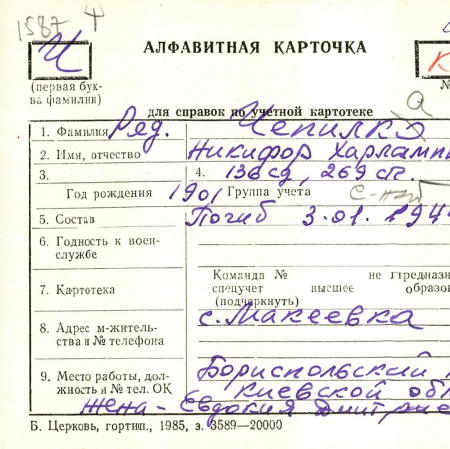 1587 4
Ч
АЛФАВИТНАЯ КАРТОЧКА
(первая бук-
ва фамилии)
№
для справок по учетной картотеке
а
1. Фамилия Ряд. Чепилко
2. Имя, отчество Никифор Харлампи
3. 4. 136 сд, 269 сп.
Год рождения 1901 Группа учета
5. Состав Погиб 3.01.194
6. Годность к воен-
службе
7. Картотека Команда № не предназн
спецучет высшее образо
(подчеркнуть)
8. Адрес м-житель-
ства и № телефона с. Макеевка
9. Место работы, дол-
жность и № тел. ОК Бориспольский
Киевской обл
Жена - Евдокия Дмитрие
Б. Церковь, гортип., 1985, з. 3589—20000